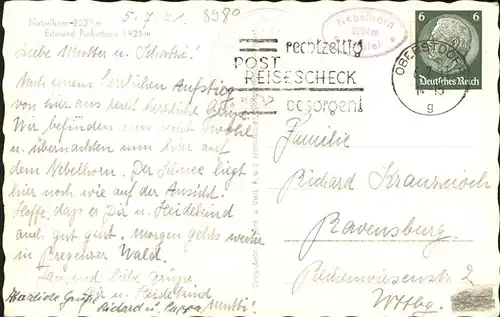 Nebelhorn 2224 m
Edmund Probsthaus 1928 m
5. 7. 21.
8989
Liebe Mutter u.
Nach einem herrlichen Aufstieg
von hier aus recht herzliche Grüße
Wir befinden uns recht wohl
u. übernachten nun hier auf
dem Nebelhorn. Der Schnee liegt
hier noch wie auf der Ansicht.
Hoffe, dass es Dir u. Heidekind
auch gut geht. Morgen gehts weiter
in Bregenzer Wald.
Tausend liebe Grüße
Dir u. Heidekind
Herzliche Grüße
Richard u. Pappa
Mutti!
Nebelhorn
2224 m
rechtzeitig
POST
REISESCHECK
besorgen!
OBERSTDORF
g
6 6
Deutsches Reich
Familie
Richard
Ravensburg
2
Wttbg.